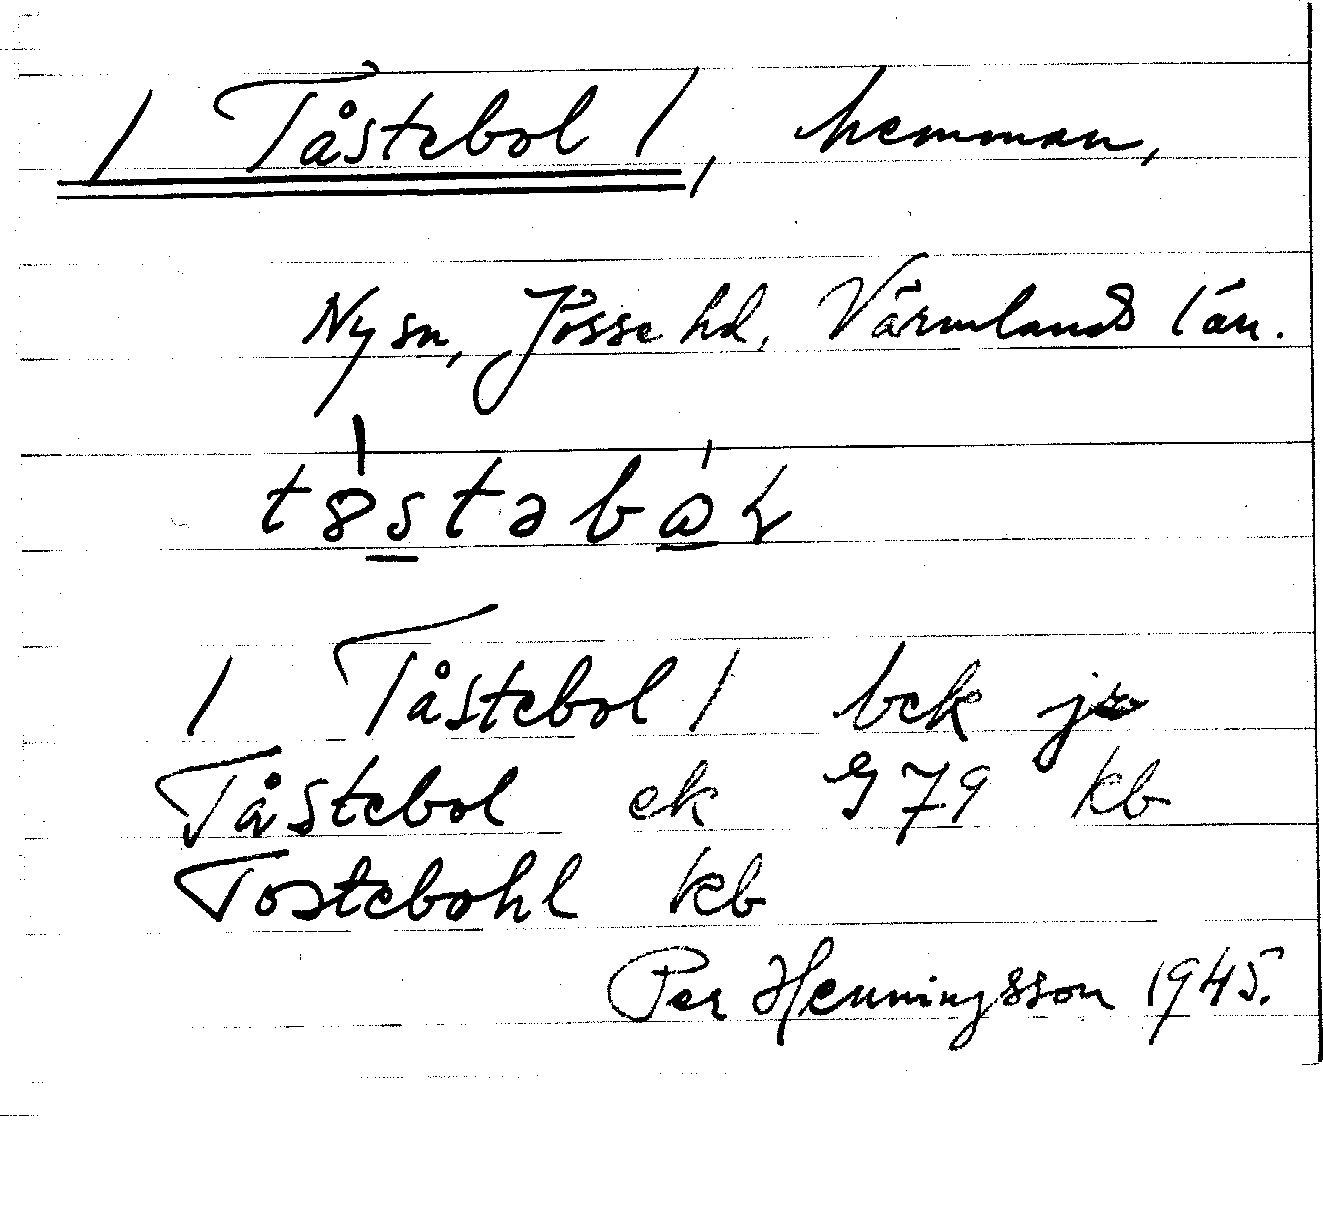 / Tåstebol /, hemman,
Ny sn, Jösse hd, Värmlands län.
/ Tåstebol / bek jr
Tåstebol ek G 79 kb
Tostebohl kb
Per Henningsson 1945.